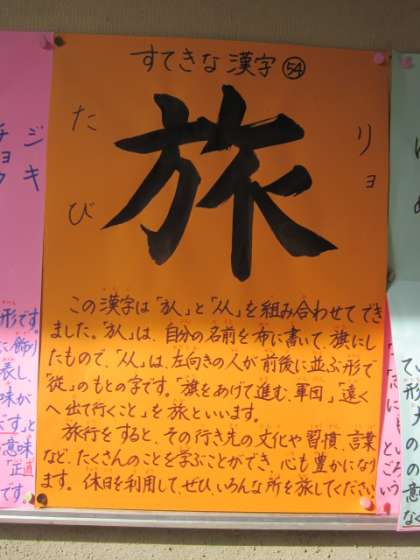 すてきな漢字 54
旅
たび
リョ
この漢字は「㫃」と「从」を組み合わせてでき
ました。「㫃」は、自分の名前を布に書いて、旗にし
たもので、「从」は、左向きの人が前後に並ぶ形で
「従」のもとの字です。「旗をあげて進む、軍団」「遠く
へ出て行くこと」を旅といいます。
旅行をすると、その行き先の文化や習慣、言葉
など、たくさんのことを学ぶことができ、心も豊かになり
ます。休日を利用して、ぜひ、いろんな所を旅してください
ジキ
チョク
形です。
に飾り
表し、
味が
です」と
意味
「正直
です